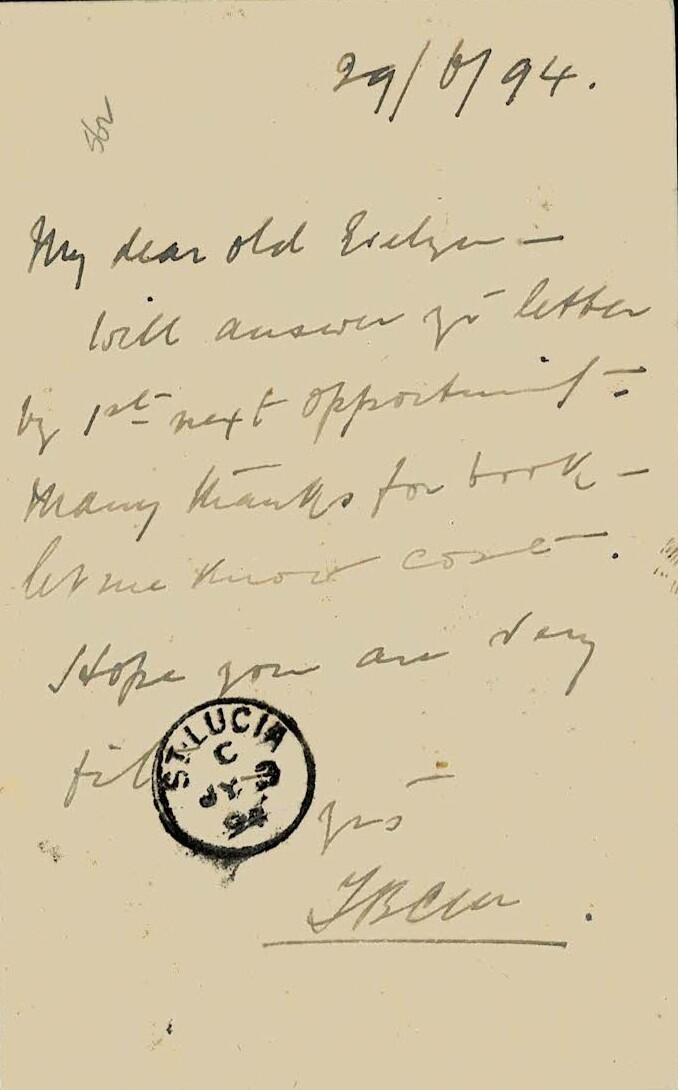 29/6/94.
562
My dear old Evelyn —
Will answer yr letter
by 1st next opportunity —
Many thanks for book —
let me know cost.
Hope you are very
fit
ST. LUCIA
C
JY 3
94
yrs